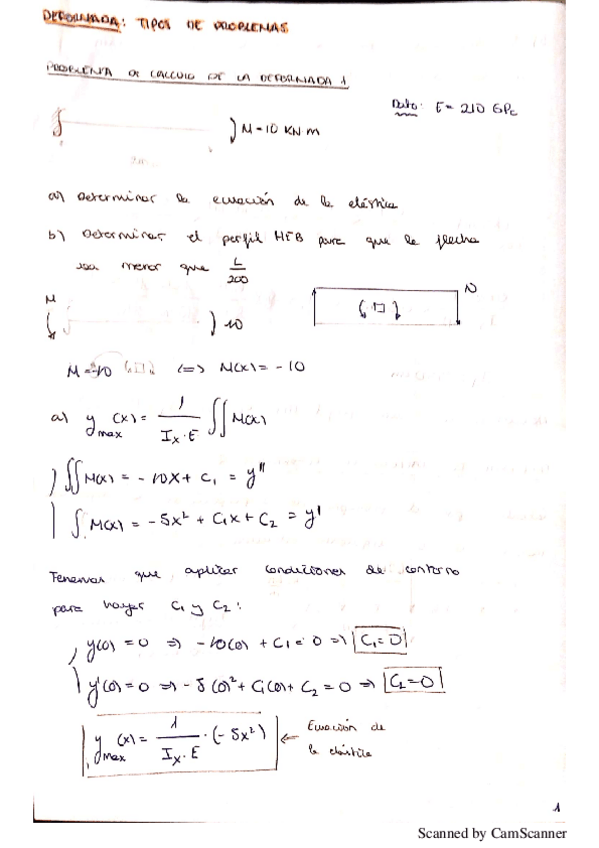 DEFORMADA: TIPOS DE PROBLEMAS
PROBLEMA DE CALCULO DE LA DEFORMADA 1
Dato: E = 210 GPa
M=10 KN·m
2m
a) Determinar la ecuación de la elástica
b) Determinar el perfil HEB para que la flecha
sea menor que L/200
M
10
N
M=-10 <=> M(x) = -10
a) y max (x) = 1/(Ix·E) ∬ M(x)
∬ M(x) = -10x + C1 = y''
∫ M(x) = -5x² + C1x + C2 = y'
Tenemos que aplicar condiciones de contorno
para hayar C1 y C2:
y(0) = 0 => -10(0) + C1 = 0 => C1=0
y'(0) = 0 => -5(0)² + C1(0) + C2 = 0 => C2=0
y max (x) = 1/(Ix·E) · (-5x²) ← Ecuación de
la elástica
1
Scanned by CamScanner